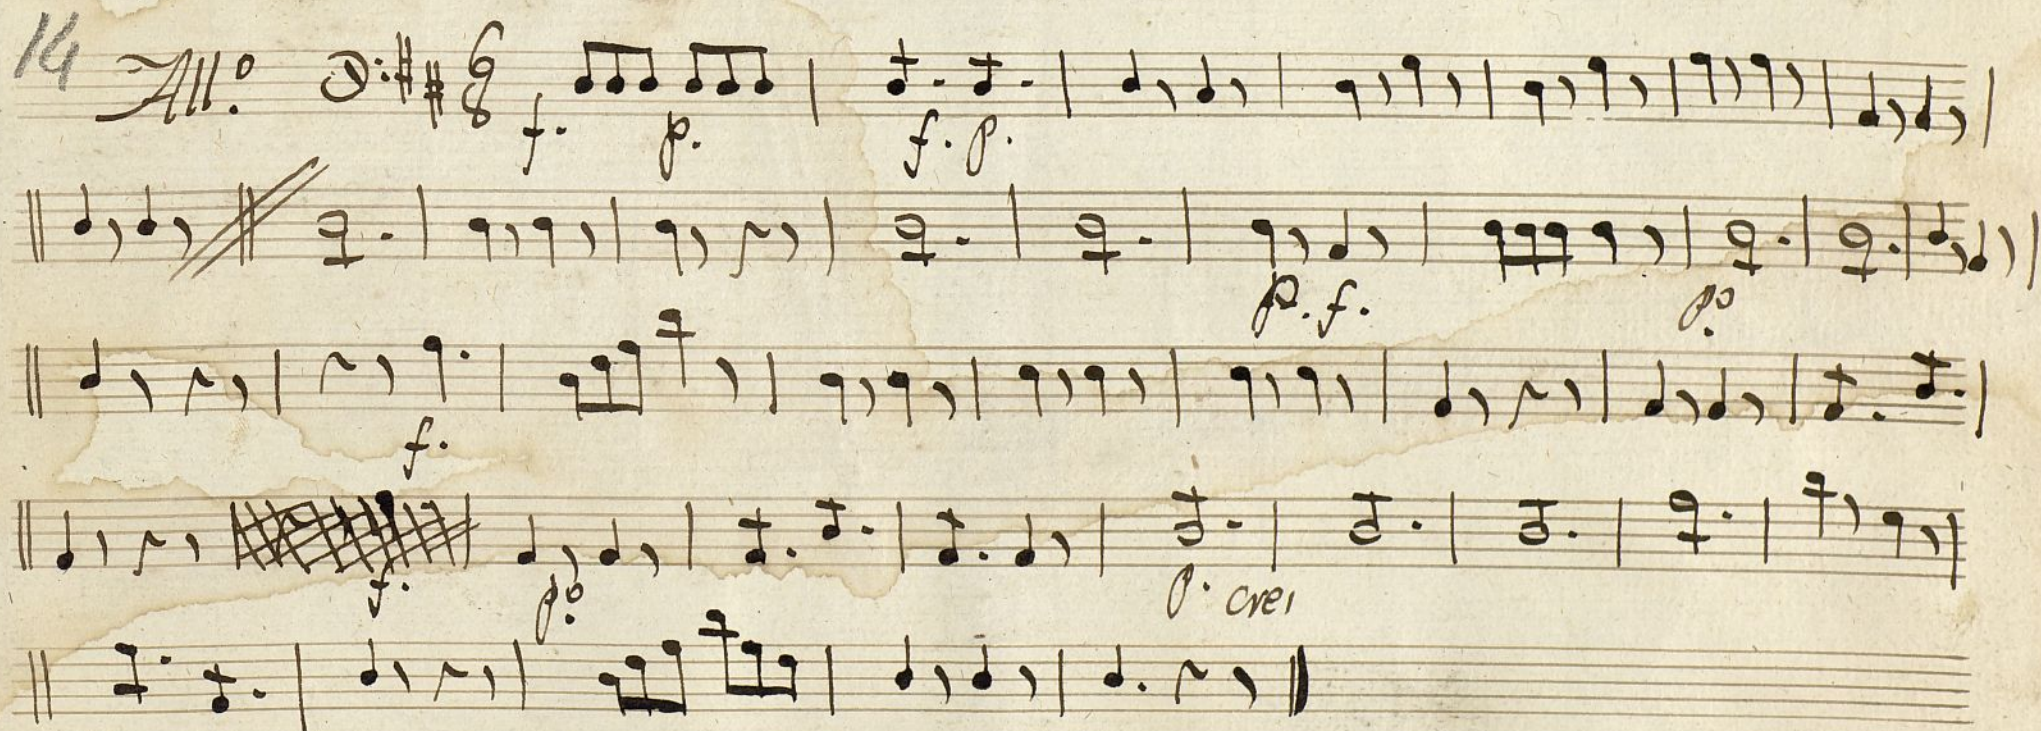 14 All.º 6 8
f. p. f. p.
p. f. p.º
f.
f. p.º p. cres